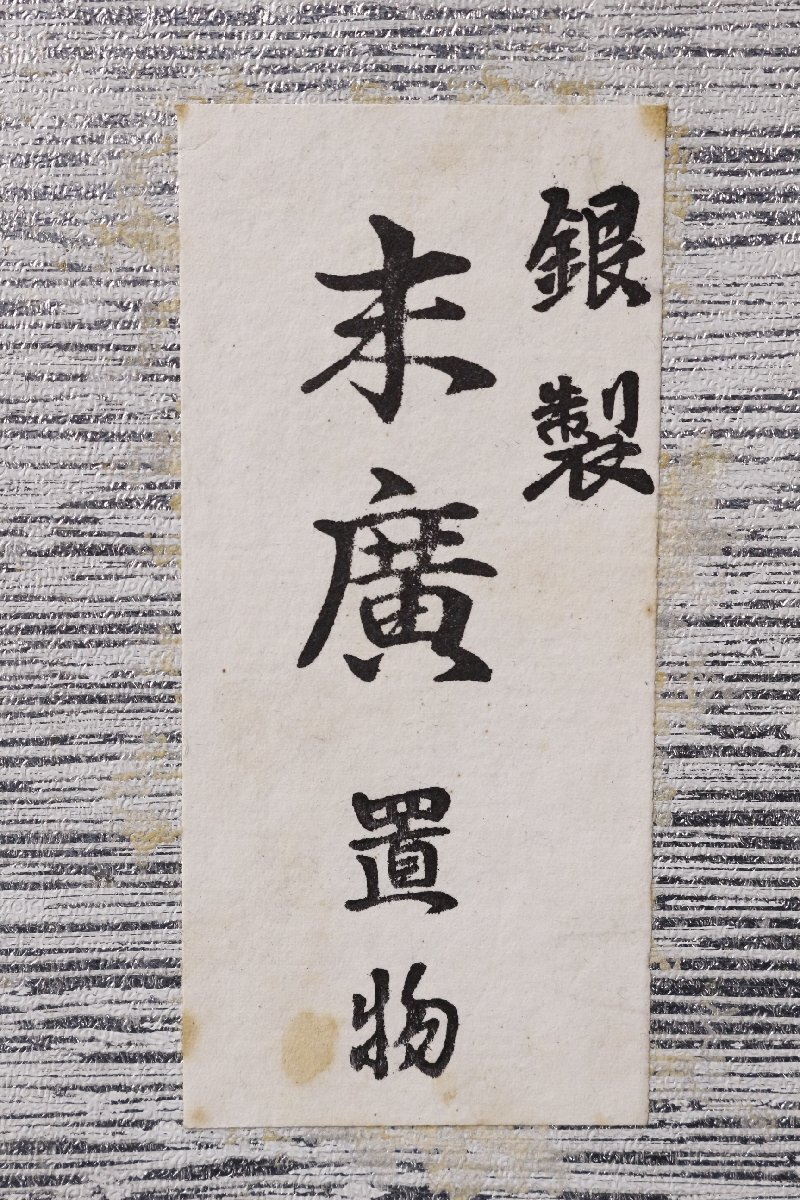 銀製
末廣置物